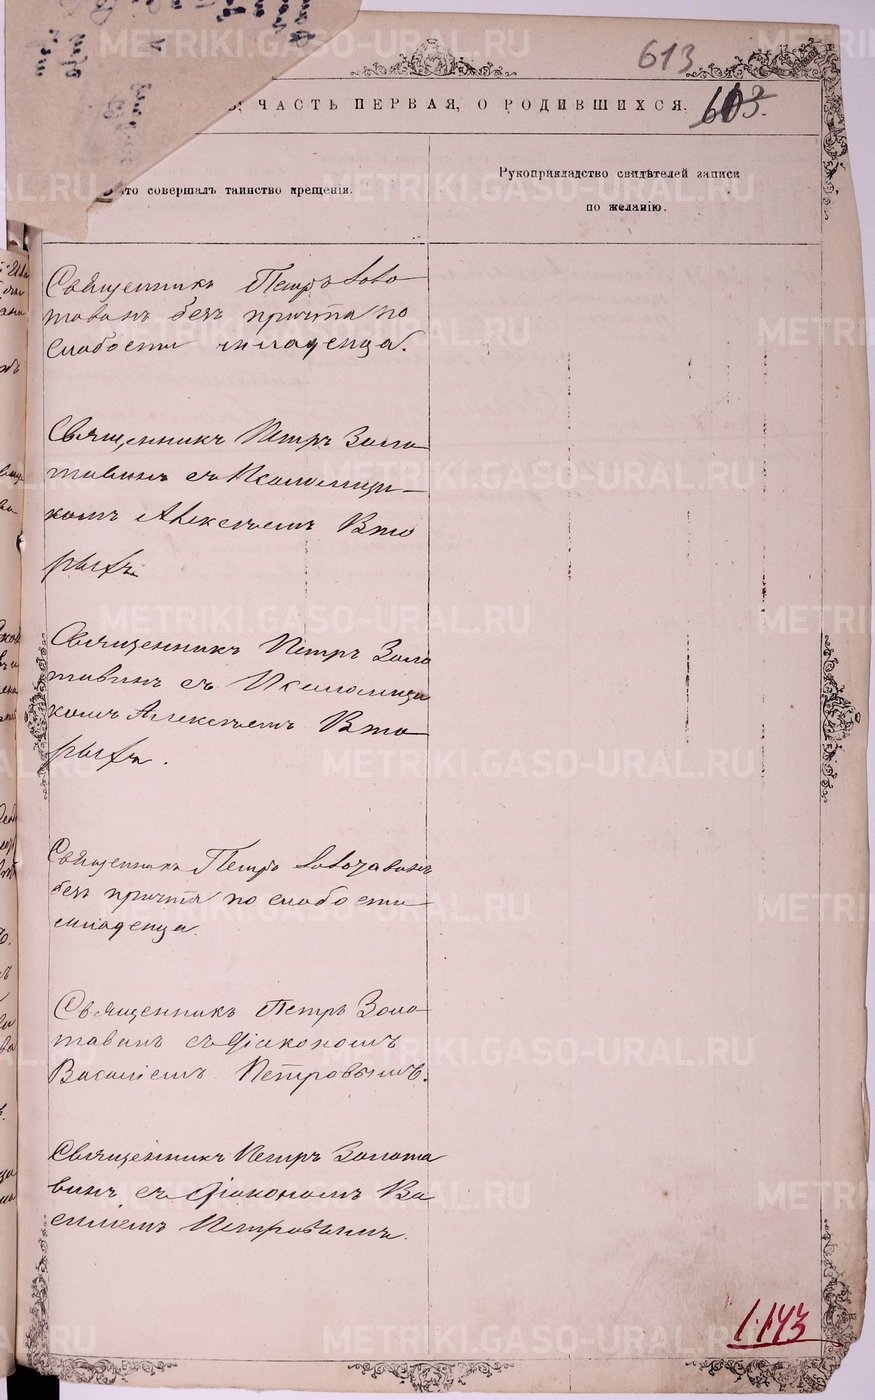 613
ЧАСТЬ ПЕРВАЯ, О РОДИВШИХСЯ.
603.
Кто совершалъ таинство крещенія.
Рукоприкладство свидѣтелей записи
по желанію.
Священникъ Петръ Золо
тавинъ безъ причта по
слабости младенца.
Священникъ Петръ Золо
тавинъ съ Псаломщи
комъ Алексѣемъ Вто
рыхъ.
Священникъ Петръ Золо
тавинъ съ Псаломщи
комъ Алексѣемъ Вто
рыхъ.
Священникъ Петръ Золотавинъ
безъ причта по слабости
младенца.
Священникъ Петръ Золо
тавинъ съ Діакономъ
Василіемъ Петровымъ.
Священникъ Петръ Золота
винъ съ Діакономъ Ва
силіемъ Петровымъ.
1.143
METRIKI.GASO-URAL.RU